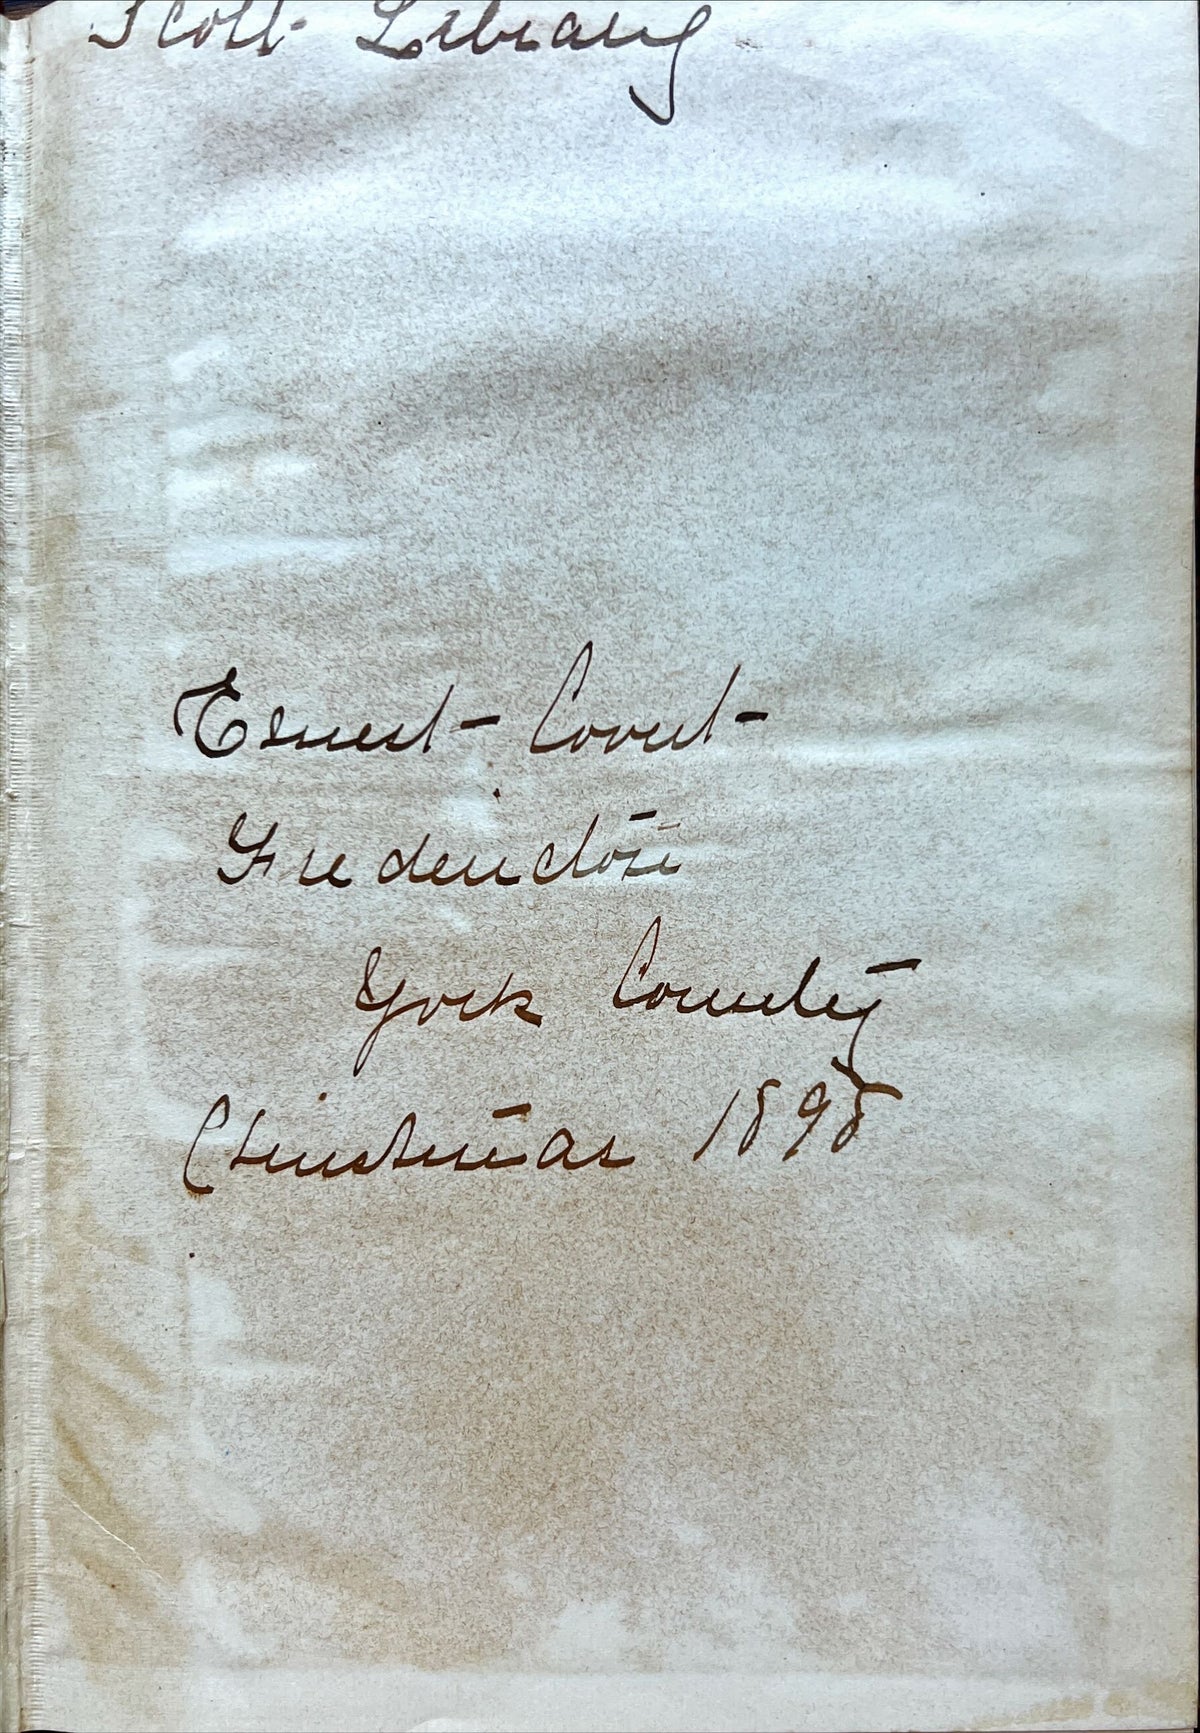 Scott Library
Ernest Covert
Fredericton
York County
Christmas 1898